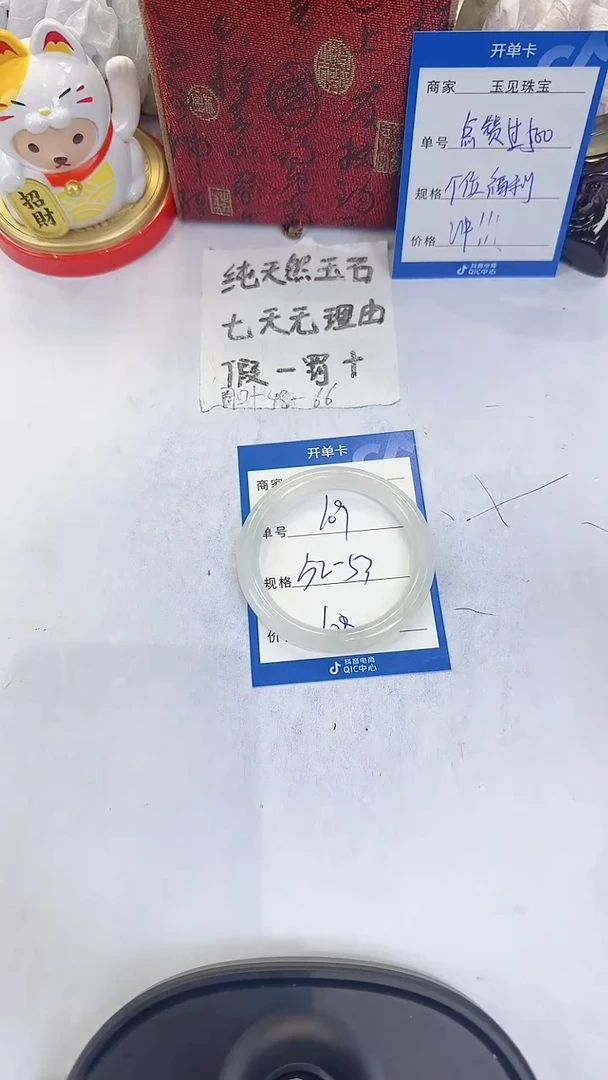 开单卡
商家 玉见珠宝
单号 点赞过500
规格 个位福利
价格 冲!!!
抖音电商
QIC中心
招財
纯天然玉石
七天无理由
假一罚十
开单卡
商家
单号 109
规格 52-53
抖音电商
QIC中心